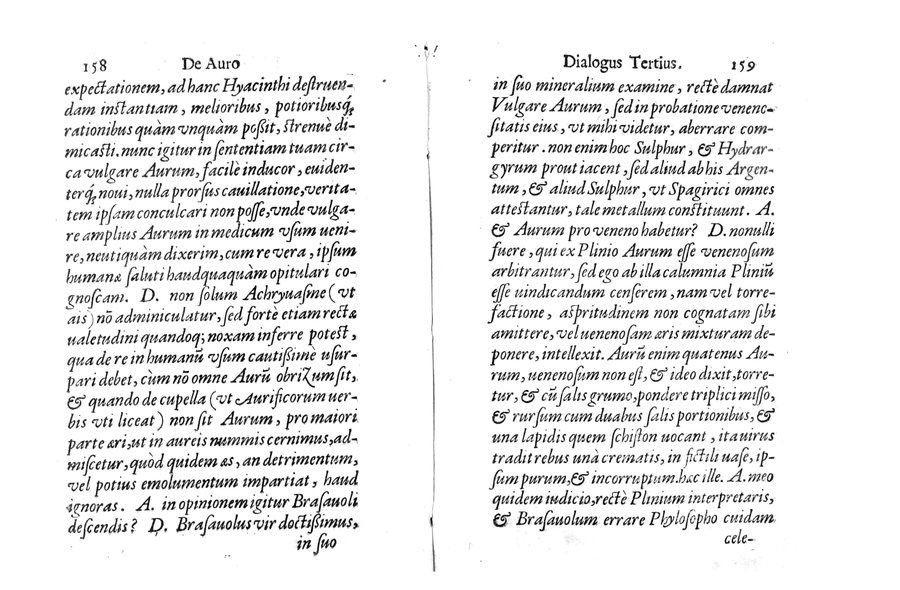 158 De Auro
expectationem, ad hanc Hyacinthi destruen-
dam instantiam, melioribus, potioribusq́;
rationibus quàm vnquàm possit, strenuè di-
micasti. nunc igitur in sententiam tuam cir-
ca vulgare Aurum, facilè inducor, euiden-
terq́; noui, nulla prorsus cauillatione, verita-
tem ipsam conculcari non posse, vnde vulga-
re amplius Aurum in medicum vsum ueni-
re, neutiquàm dixerim, cum re vera, ipsum
humanæ saluti haudquaquàm opitulari co-
gnoscam. D. non solum Achryuasme (vt
ais) nō adminiculatur, sed fortè etiam rectæ
ualetudini quandoq; noxam inferre potest,
qua de re in humanū vsum cautissimè usur-
pari debet, cùm nō omne Aurū obrizum sit,
& quando de cupella (vt Aurificorum uer-
bis vti liceat) non sit Aurum, pro maiori
parte æri, ut in aureis nummis cernimus, ad-
miscetur, quòd quidem æs, an detrimentum,
vel potius emolumentum impartiat, haud
ignoras. A. in opinionem igitur Brasauoli
descendis? D. Brasauolus vir doctissimus,
in suo
Dialogus Tertius. 159
in suo mineralium examine, rectè damnat
Vulgare Aurum, sed in probatione venenc-
sitatis eius, vt mihi videtur, aberrare com-
peritur. non enim hoc Sulphur, & Hydrar-
gyrum prout iacent, sed aliud ab his Argen-
tum, & aliud Sulphur, vt Spagirici omnes
attestantur, tale metallum constituunt. A.
& Aurum pro veneno habetur? D. nonulli
fuere, qui ex Plinio Aurum esse venenosum
arbitrantur, sed ego ab illa calumnia Pliniū
esse uindicandum censerem, nam vel torre-
factione, aspritudinem non cognatam sibi
amittere, vel uenenosam æris mixturam de-
ponere, intellexit. Aurū enim quatenus Au-
rum, uenenosum non est, & ideo dixit, torre-
tur, & cū salis grumo, pondere triplici misso,
& rursum cum duabus salis portionibus, &
una lapidis quem schiston uocant, ita uirus
tradit rebus unà crematis, in fictili uase, ip-
sum purum, & incorruptum. hæc ille. A. meo
quidem iudicio, rectè Plinium interpretaris,
& Brasauolum errare Phylosopho cuidam
cele-